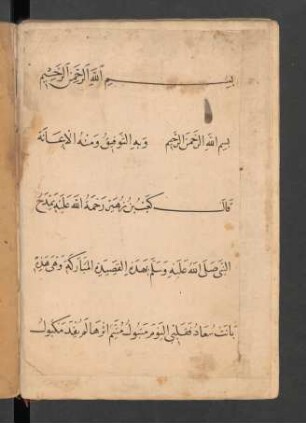 بسم الله الرحمن الرحيم
بسم الله الرحمن الرحيم وبه التوفيق ومنه الاعانة
قال كعب بن زهير رحمة الله عليه يمدح
النبي صلى الله عليه وسلم بهذه القصيدة المباركة وهي هذه
بانت سعاد فقلبي اليوم متبول متيم اثرها لم يفد مكبول